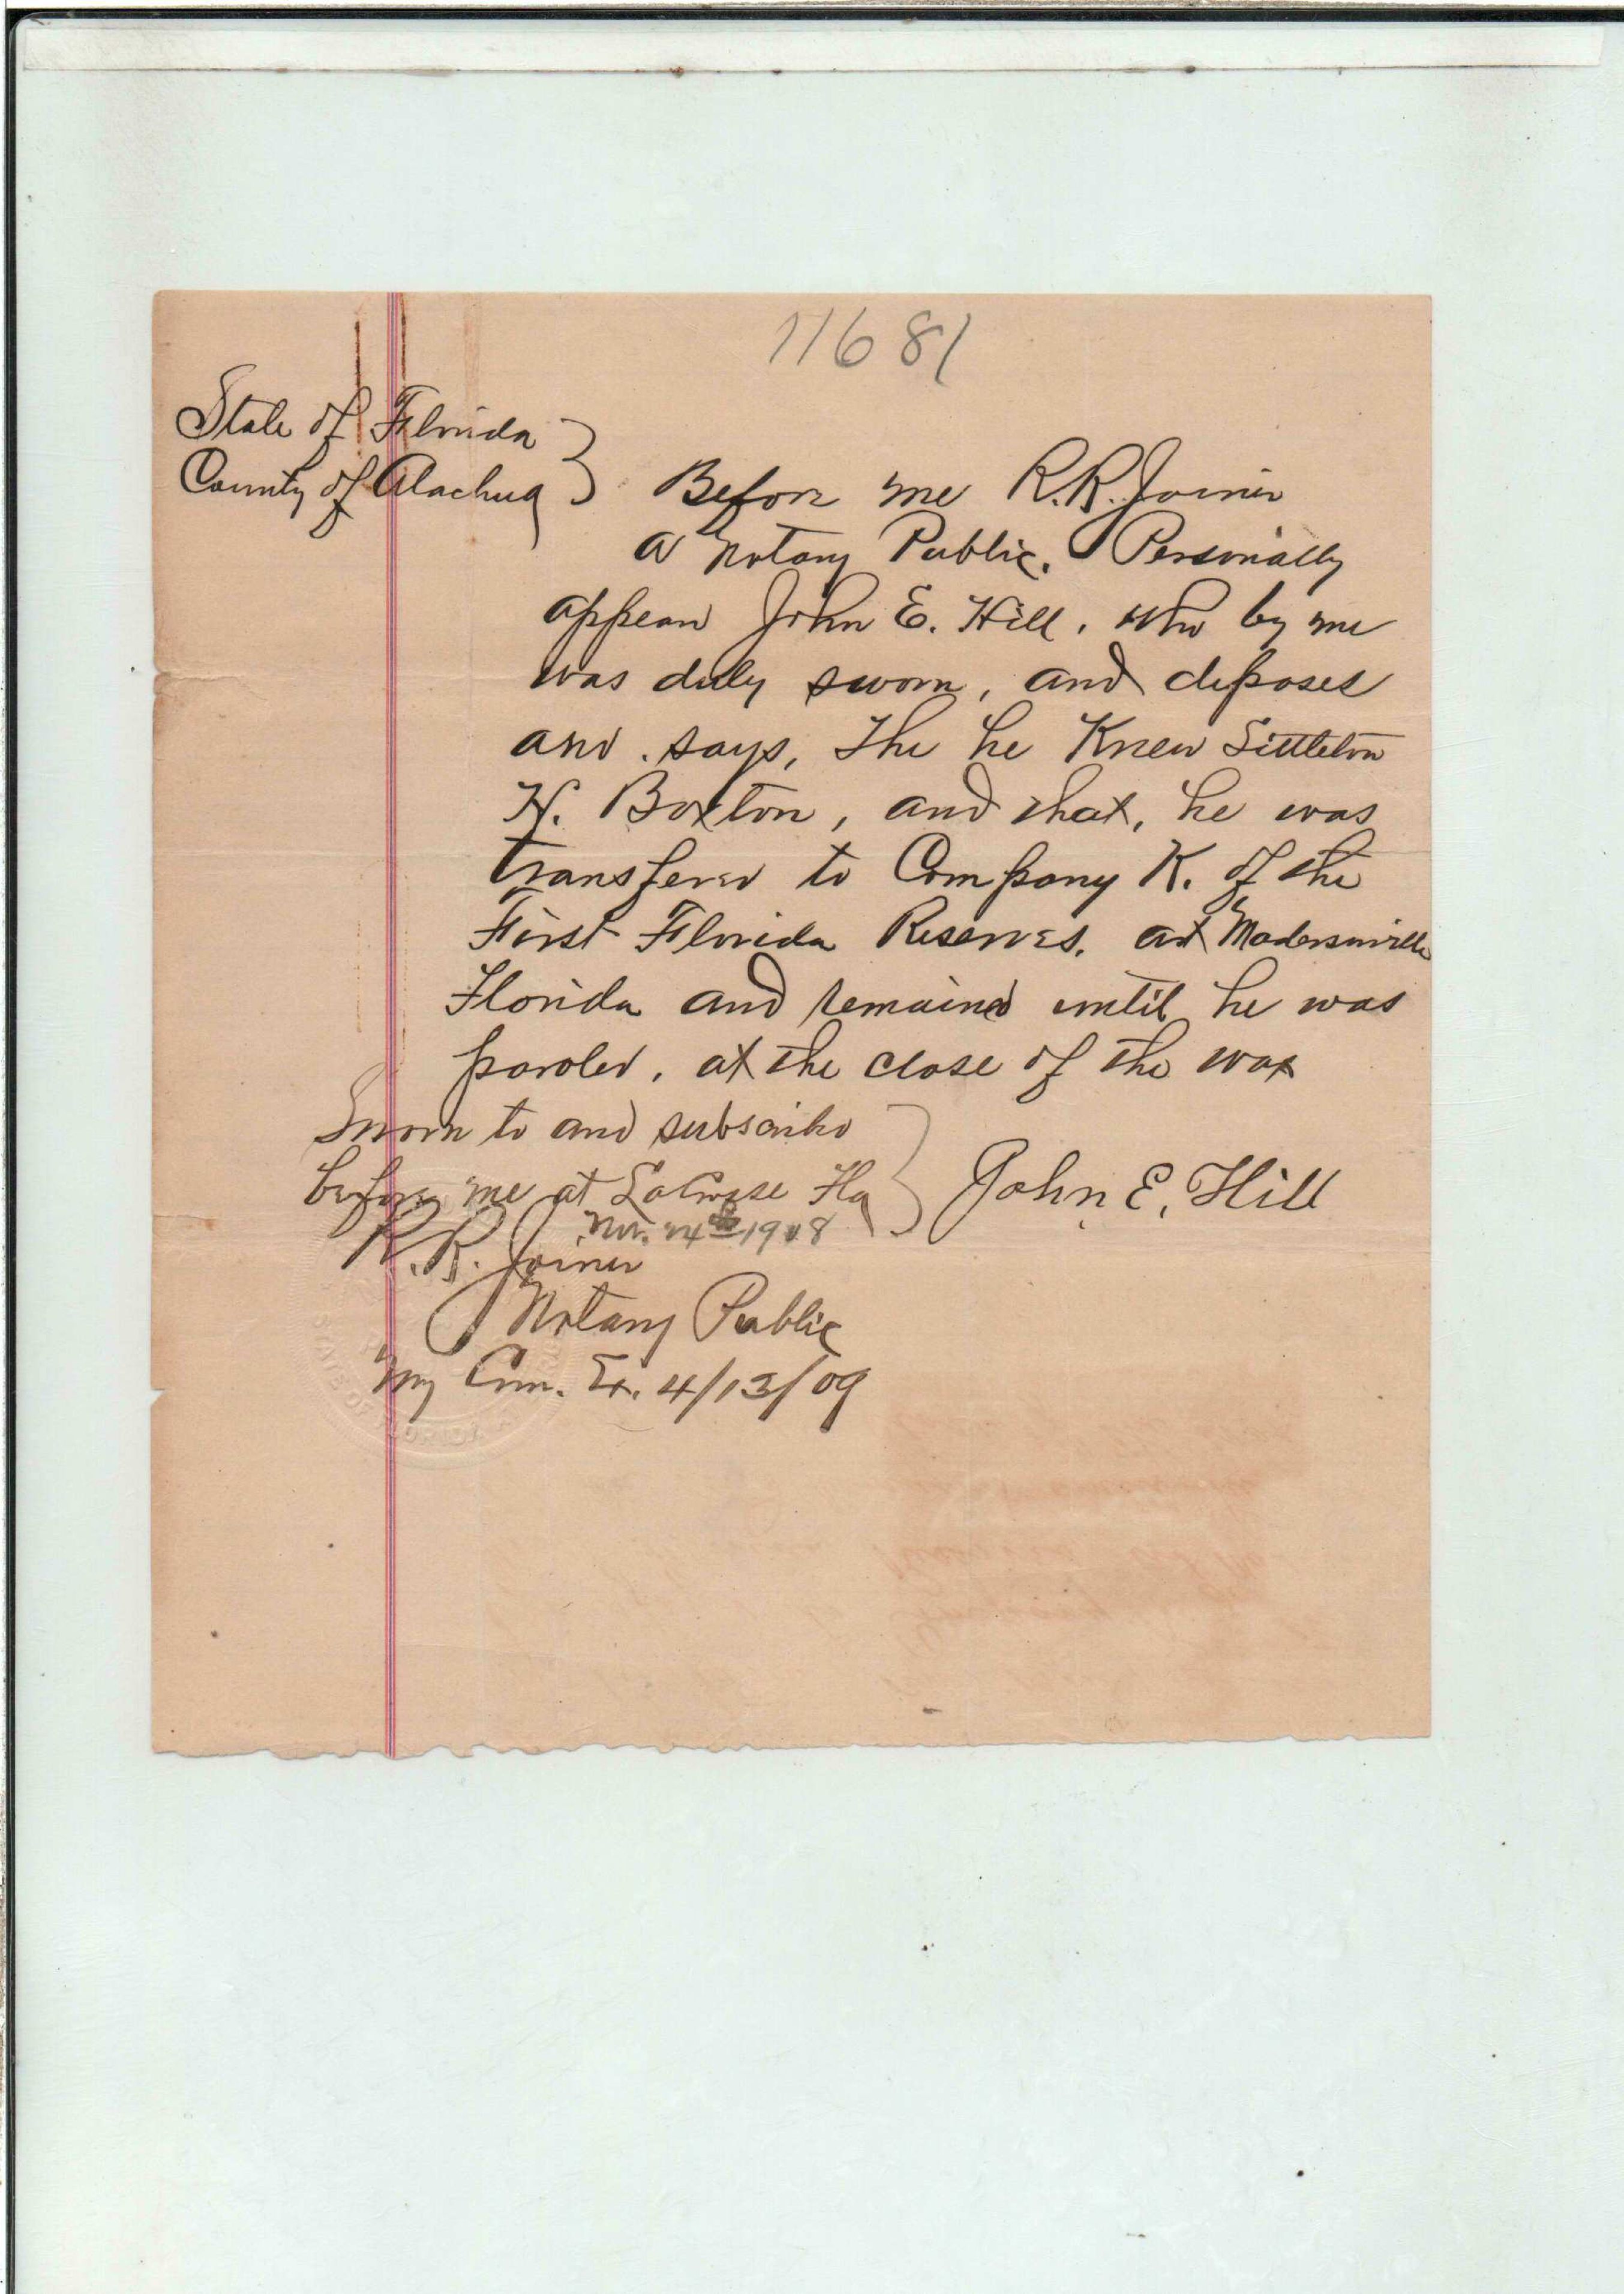 11681
State of Florida
County of Alachua } Before me R.R. Joiner
a Notary Public. Personally
appear John E. Hill, who by me
was duly sworn, and deposes
and says, The he Knew Littleton
H. Boxton, and that, he was
transfered to Company K. of the
First Florida Reserves. at Madersonville
Florida and remained until he was
paroled, at the close of the war
Sworn to and subscribed
before me at LaCrosse Fla } John E. Hill
Nov. 24th 1908
R.R. Joiner
Notary Public
My Com. Ex. 4/13/09
STATE OF FLORIDA